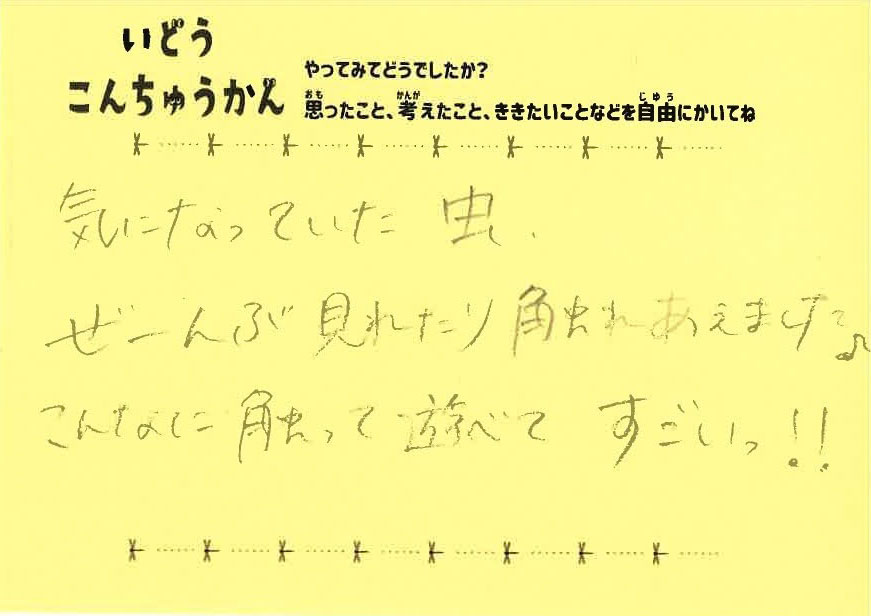 いどう
こんちゅうかん
やってみてどうでしたか?
思ったこと、考えたこと、ききたいことなどを自由にかいてね
気になっていた 虫、
ぜーんぶ 見れたり 触れあえますて♪
こんなに 触って 遊べて すごいっ!!